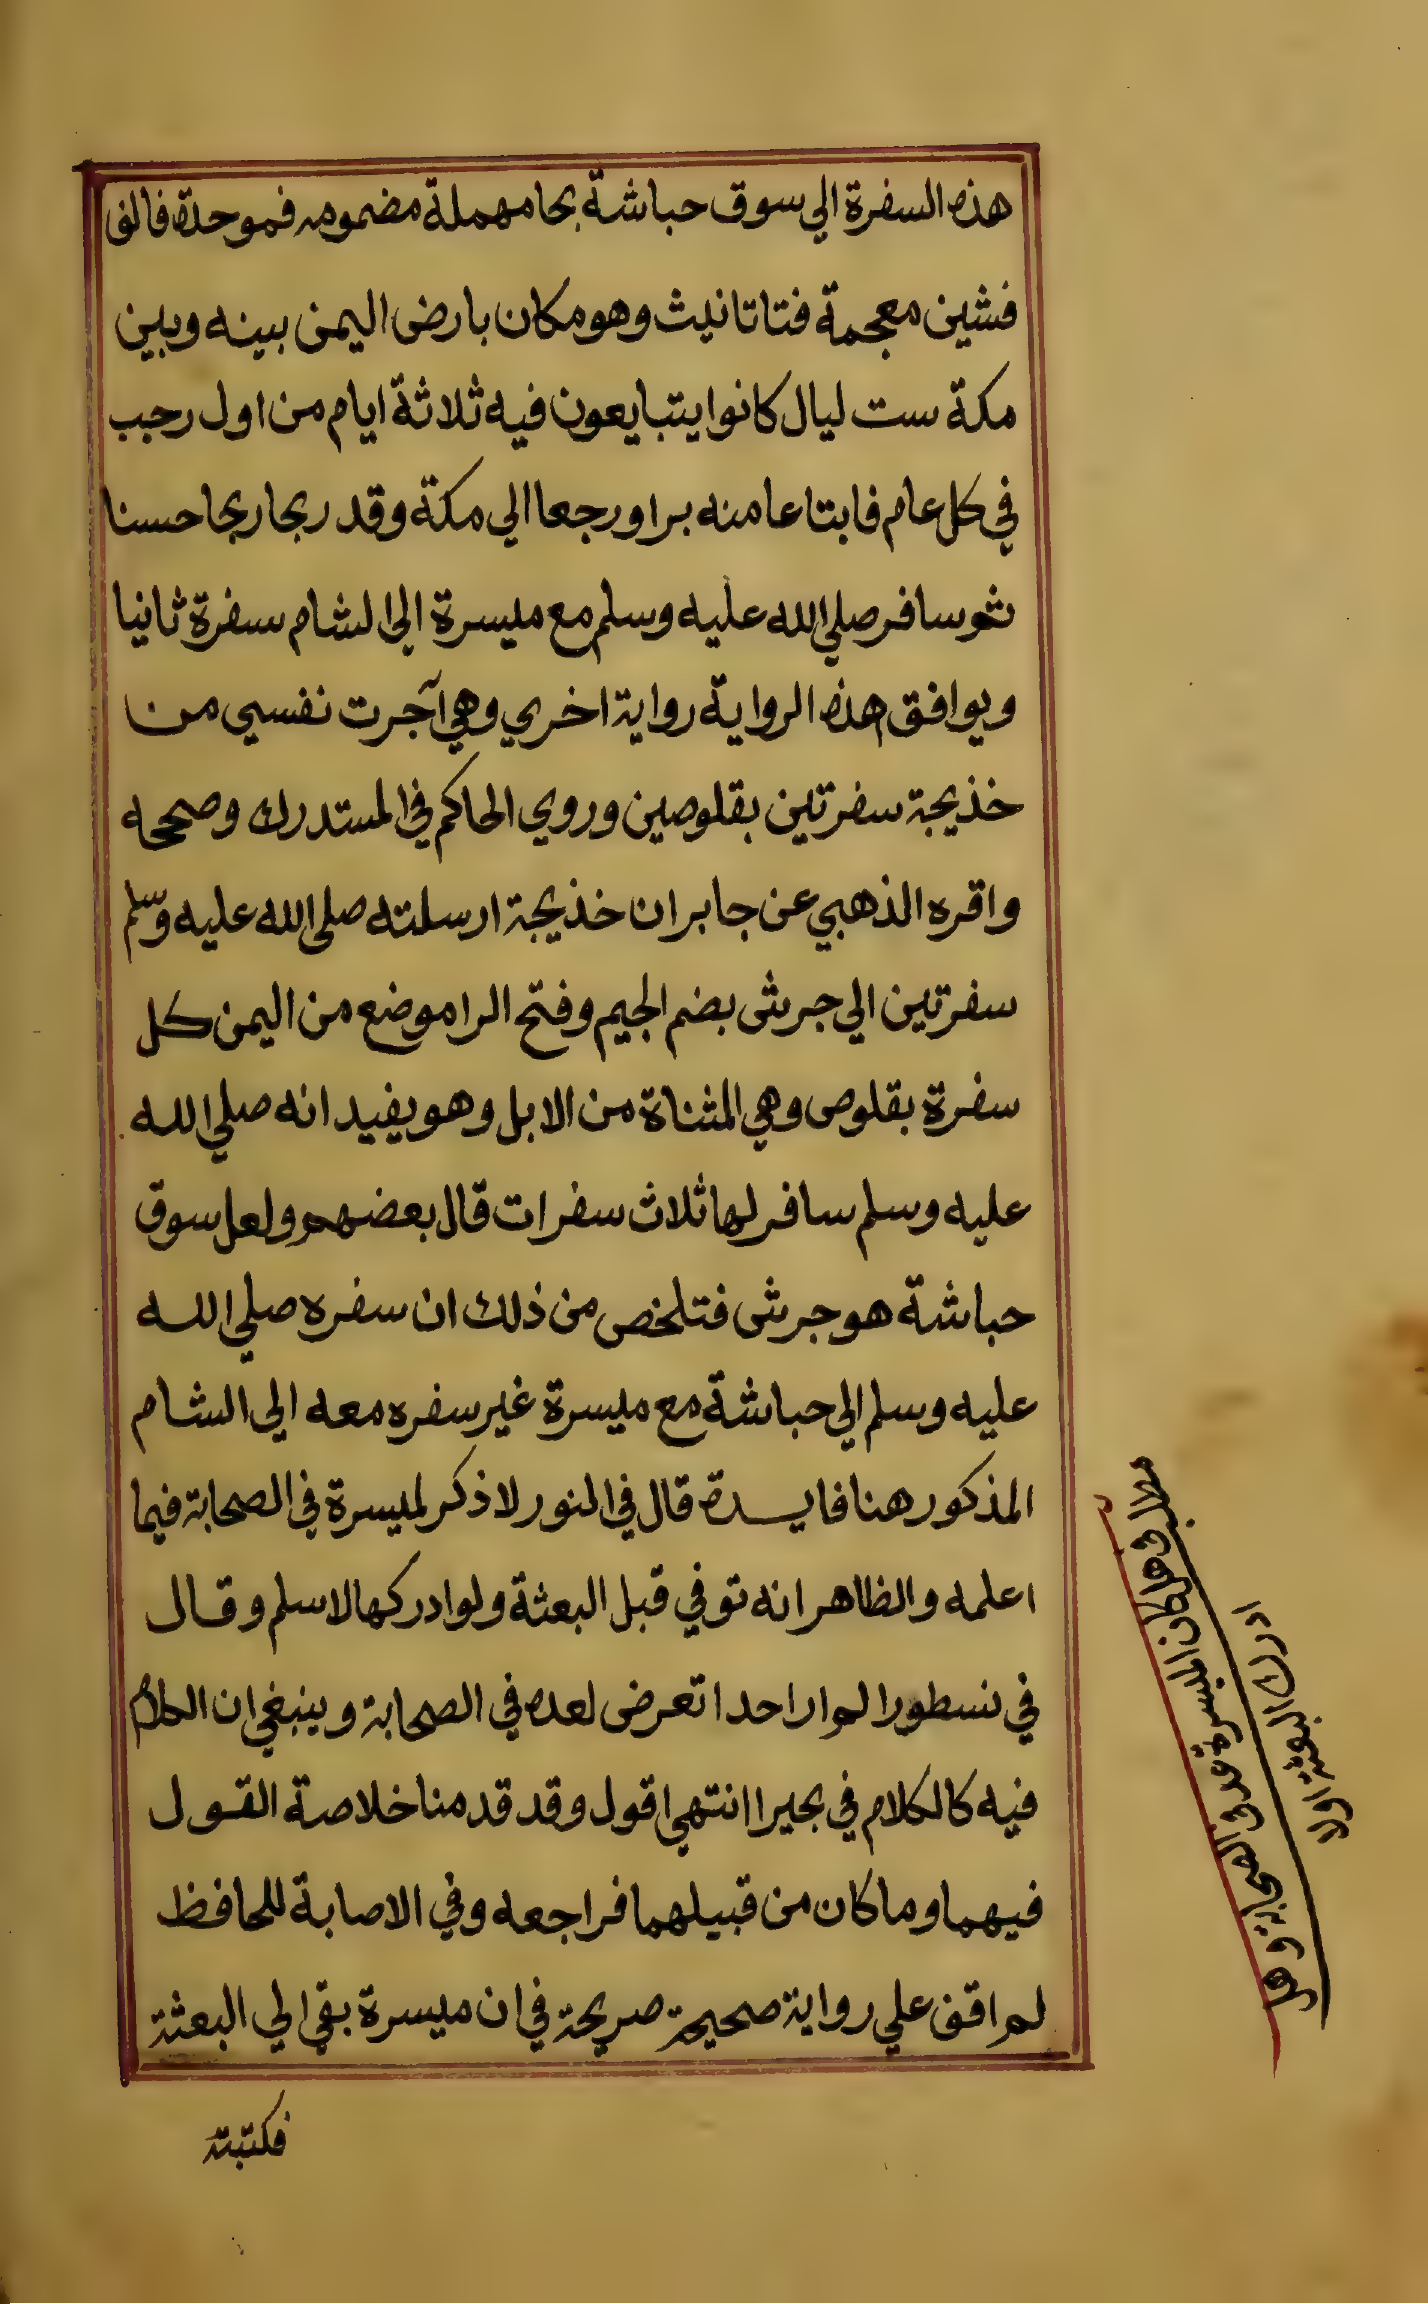 هذه السفرة الي سوق حباشة بحا مهملة مضمومه فموحدة فالف
فشين معجمة فتا تانيث وهو مكان بارض اليمن بينه وبين
مكة ست ليال كانوا يتبايعون فيه ثلاثة ايام من اول رجب
في كل عام فابتاعا منه برا ورجعا الي مكة وقد ربحا ربحا حسنا
ثم سافر صلي الله عليه وسلم مع ميسرة الي الشام سفرة ثانيا
ويوافق هذه الرواية رواية اخري وهي آجرت نفسي من
خذيجة سفرتين بقلوصين وروي الحاكم في المستدرك وصححه
واقره الذهبي عن جابر ان خذيجة ارسلته صلي الله عليه وسلم
سفرتين الي جرش بضم الجيم وفتح الرا موضع من اليمن كل
سفرة بقلوص وهي المثناة من الابل وهو يفيد انه صلي الله
عليه وسلم سافر لها ثلاث سفرات قال بعضهم ولعل سوق
حباشة هو جرش فتلخص من ذلك ان سفره صلي الله
عليه وسلم الي حباشة مع ميسرة غير سفره معه الي الشام
المذكور هنا فايسدة قال في النور لا ذكر لميسرة في الصحابة فيما
اعلمه والظاهر انه توفي قبل البعثة ولو ادركها لاسلم وقال
في نسطورا لم ار احدا تعرض لعده في الصحابة وينبغي ان الكلام
فيه كالكلام في بحيرا انتهي اقول وقد قدمنا خلاصة القول
فيهما وما كان من قبيلهما فراجعه وفي الاصابة للحافظ
لم اقف علي رواية صحيحة صريحة في ان ميسرة بقي الي البعثة
فكتبته
مطلب في هل كان لميسرة عد في الصحابة وهل
ادرك البعثة اولا